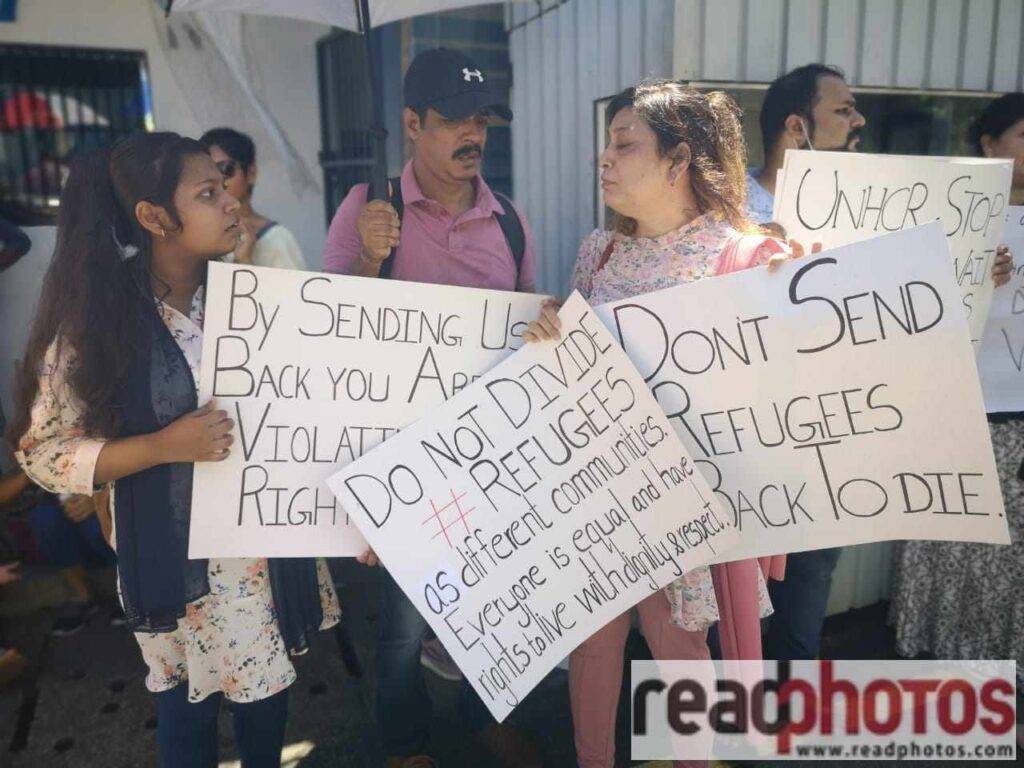 By Sending Us
Back you Are
Violati
Right
Do Not Divide
# Refugees
as different communities.
Everyone is equal and have
rights to live with dignity & respect.
Don't Send
Refugees
Back To Die.
UNHCR Stop
readphotos
www.readphotos.com